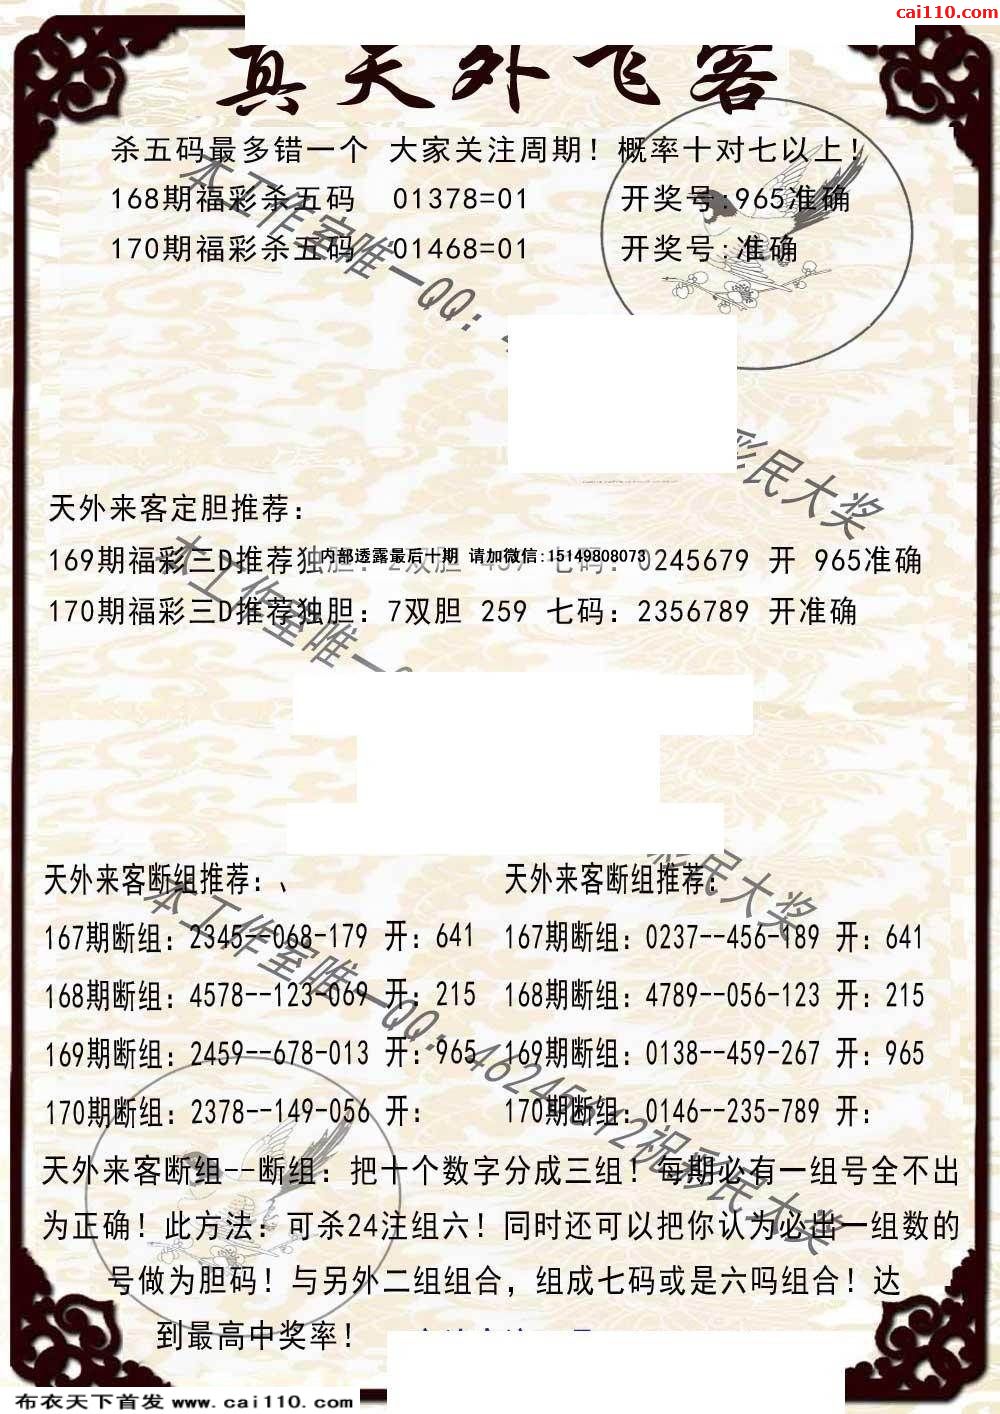 cai110.com
真天外飞客
杀五码最多错一个 大家关注周期！概率十对七以上！
168期福彩杀五码 01378=01 开奖号:965准确
170期福彩杀五码 01468=01 开奖号:准确
本工作室唯一QQ:
彩民大奖
天外来客定胆推荐:
169期福彩三D推荐独胆: 2双胆 七码: 0245679 开 965准确
内部透露最后十期 请加微信:15149808073
170期福彩三D推荐独胆: 7双胆 259 七码: 2356789 开准确
本工作室唯一
彩民大奖
天外来客断组推荐:、
167期断组: 2345--068-179 开: 641
168期断组: 4578--123-069 开: 215
169期断组: 2459--678-013 开: 965
170期断组: 2378--149-056 开:
天外来客断组推荐:
167期断组: 0237--456-189 开: 641
168期断组: 4789--056-123 开: 215
169期断组: 0138--459-267 开: 965
170期断组: 0146--235-789 开:
本工作室唯一QQ:46245612祝彩民大奖
天外来客断组--断组: 把十个数字分成三组！每期必有一组号全不出
为正确！此方法: 可杀24注组六！同时还可以把你认为必出一组数的
号做为胆码！与另外二组组合，组成七码或是六吗组合！达
到最高中奖率！
布衣天下首发 www.cai110.com